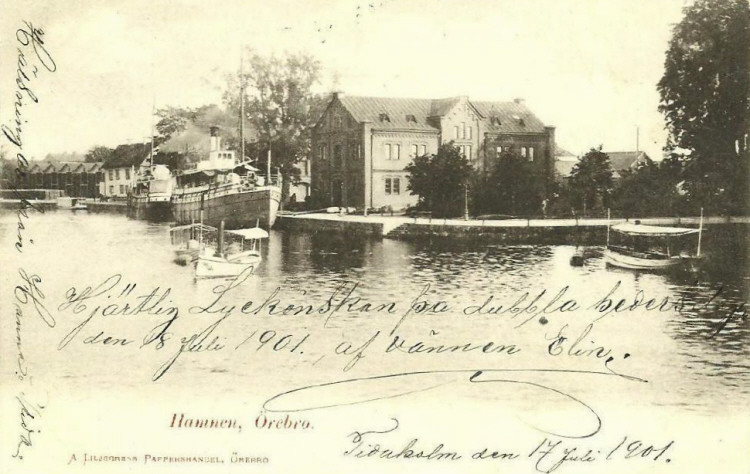 Hjärtlig Lyckönskan på dubbla heders
den 18 Juli 1901., af vännen Elin.
Hamnen, Örebro.
A. LILJEGRENS PAPPERSHANDEL, ÖREBRO
Tidaholm den 17 Juli 1901.
Hälsning från Hanna